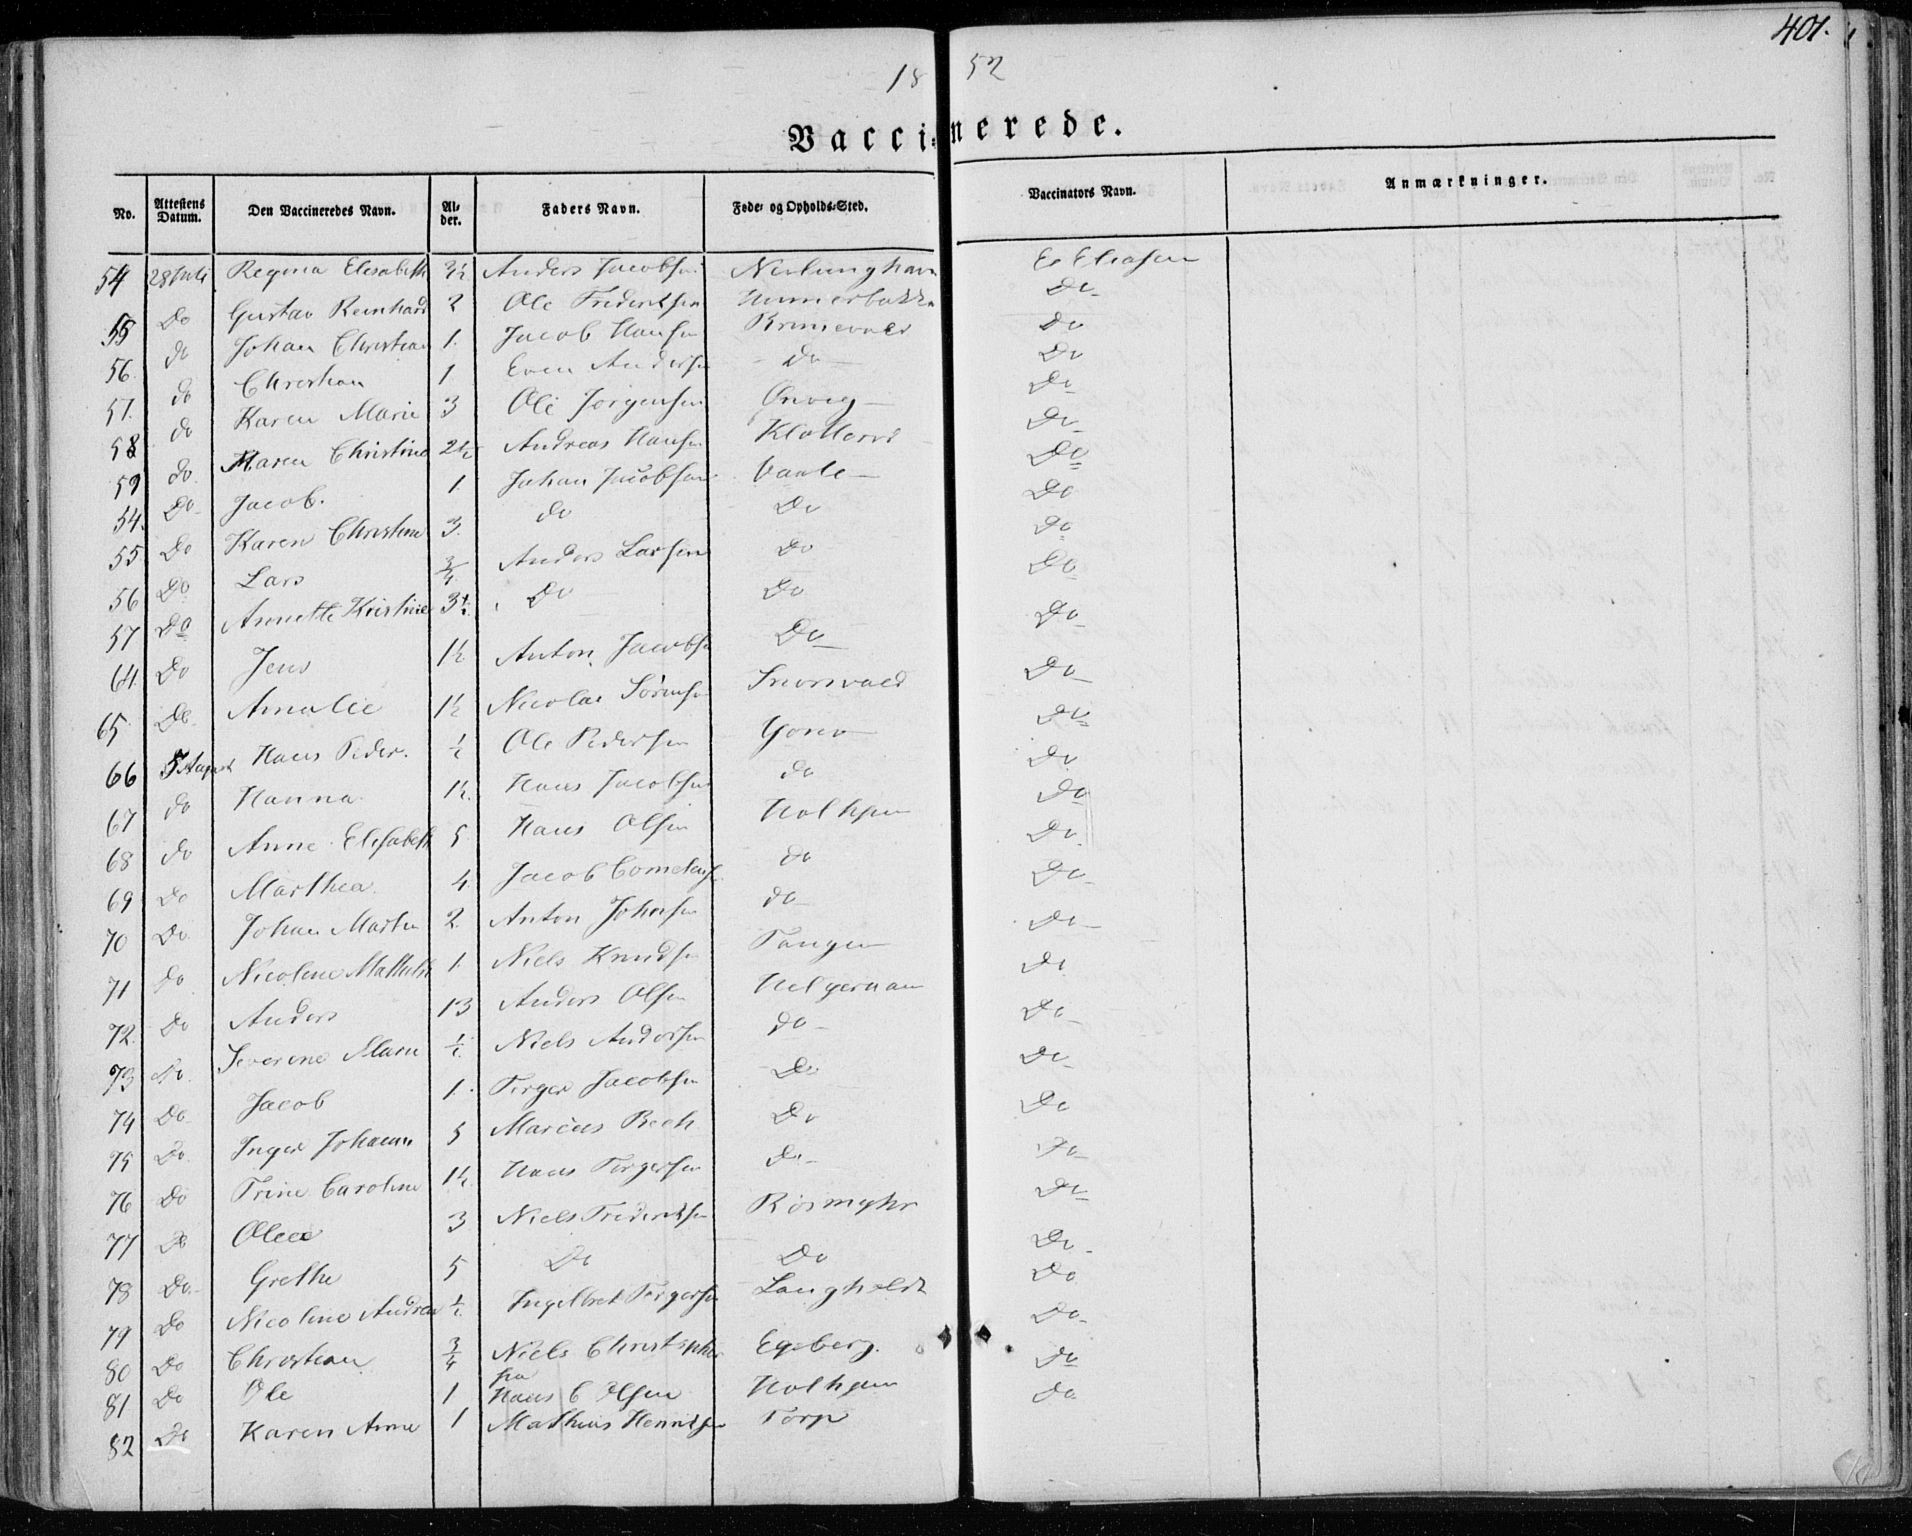 401.
18 52
Vaccinerede.
No. Attestens Datum. Den Vaccineredes Navn. Alder. Faders Navn. Føde- og Opholds-Sted. Vaccinators Navn. Anmærkninger.
54 28 Juli Regina Elesabeth 3½ Anders Jacobsen Nevlunghavn E. Eliasen
55 Do Gustav Reinhard 2 Ole Frederiksen Hummerbakke Do
56. do Johan Christian 1. Jacob Hansen Brunevald Do
57. do Christian 1 Even Andersen Do Do
58 do Karen Marie 3 Ole Jørgensen Onveg Do
59 do. Maren Christine 2½ Andreas Hansen Do
54. Do Jacob. 1. Johan Jacobsen Vaale Do
55 Do Karen Christine 3. do Do Do
56 Do Lars 3/4 Anders Larsen Do Do
57 Do Annette Kristine 3½. Do Do Do
64 Do Jens 1½ Anton Jacobsen Do Do
65 Do Amalie 1½ Nicolai Sørensen Do
66 5 August Hans Peder. ½ Ole Pedersen Gorno Do
67 do Hanna 1½. Hans Jacobsen do Do
68 do Anne Elisabeth 5 Hans Olsen Holthjem Do
69 Do Marthea. 4. Jacob do Do
70 Do. Johan Martin 2. Anton Johnsen do Do
71 Do Nicoline Mathilde 1. Niels Knudsen Tangen Do
72. Do Anders 13 Anders Olsen Helgeroaen Do
73 Do. Severine Marie ½. Niels Andersen do Do
74 Do Jacob 1. Torger Jacobsen Do Do
75 Do. Inger Johanne 5 Marcus Bech Do Do
76 Do Trine Caroline 1½ Hans Torgersen do Do
77 Do Olea 3 Niels Frederiksen Røsmyhr Do
78 Do Grethe 5 Do Do Do
79 Do Nicoline Andrea ½. Ingelbret Torgersen Langholdt Do
80 Do Christian 3/4 Niels Christopher Egeberg. Do
81 Do Ole 1 Hans C Olsen Holthjem Do
82 Do Karen Anne 1 Mathias Henriksen Torp Do